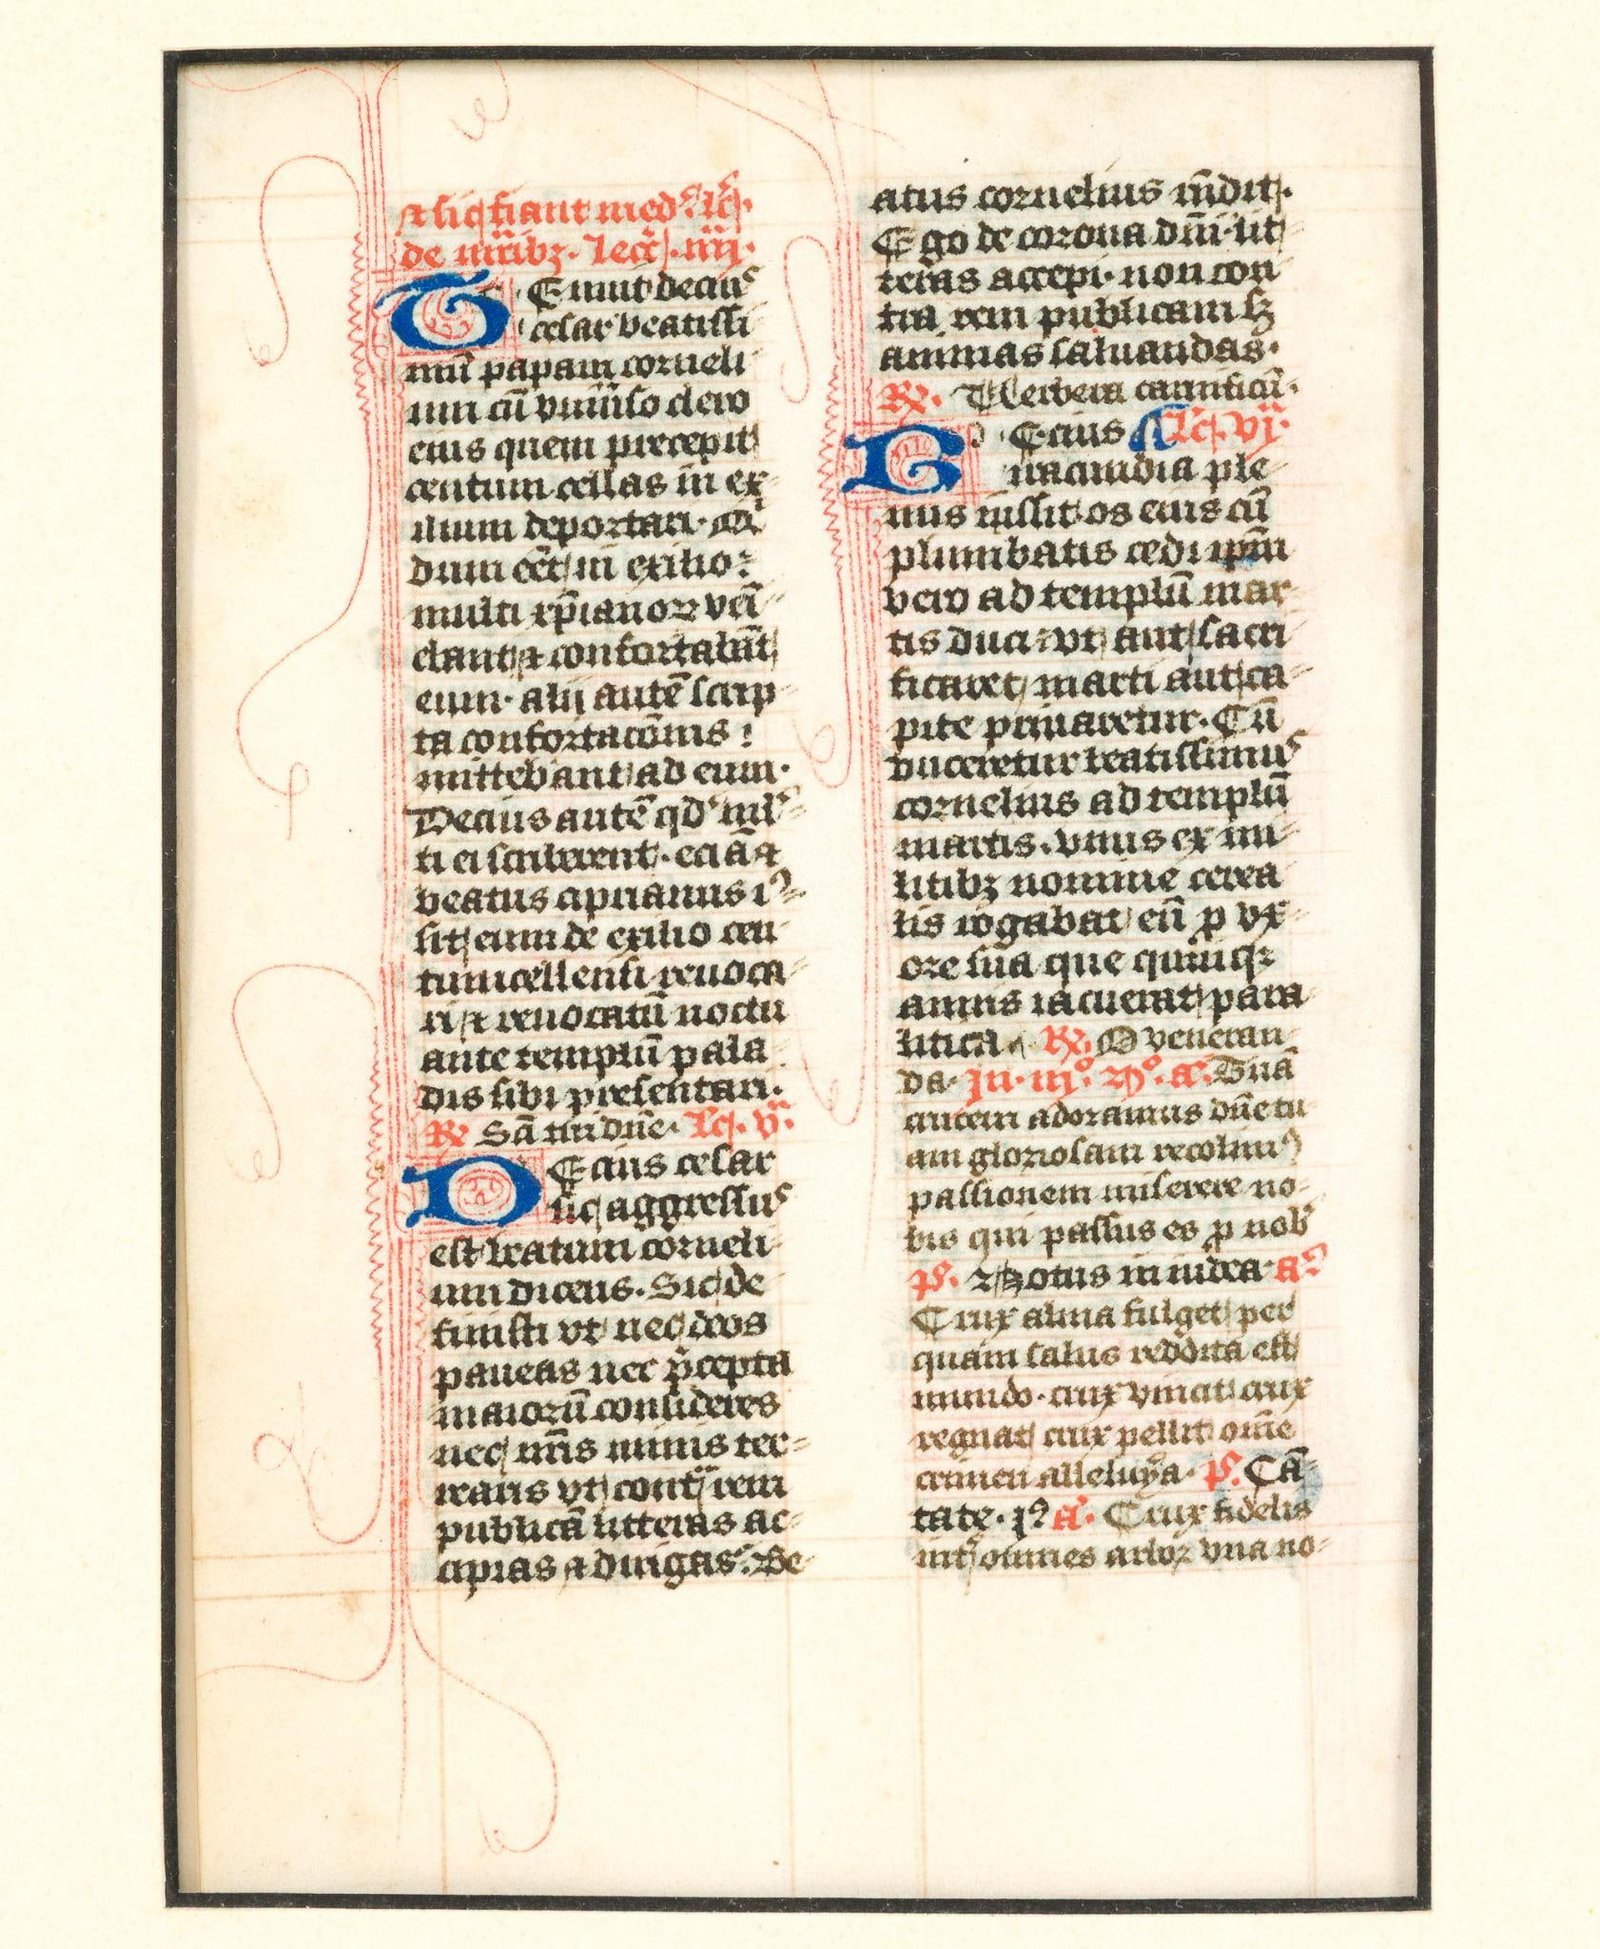 ⁊ sic fiant med. lc̄.
de mr̄ibꝫ. lecc̄. iiij.
TEmut deciꝰ
cesar beatissi
mū papam corneli
um cū vniuiso clero
eius quem precepit
centum cellas in ex
ilium deportari.
dum eēt in exilio:
multi xp̄ianoꝝ
confortabāt
eum. alij autē scrip
ta confortacōnis:
mittebant ad eum.
Decius autē qd
ei scriberent. eciā ⁊
beatus ciprianus
sit eum de exilio cen
tumcellensi reuoca
ri ⁊ reuocatū noctu
ante templū pala
dis sibi presentari.
℟ Sā dn̄e. Lc̄. v.
DEcius cesar
sic aggressus
est beatum corneli
um dicens. Sic de
finisti vt nec deos
paueas nec p̄cepta
maiorū consideres
nec nr̄is minis ter
rearis vt rem
publicā litteras ac
cipias ⁊ dirigas. Be
atus cornelius rn̄dit.
Ego de corona dn̄i lit
teras accepi. non con
tra rem publicam sꝫ
animas saluandas.
℟. Verbera carnificū.
DEcius Lc̄. vj.
iracundia ple
nus iussit os eius cū
plumbatis cedi ipm̄
vero ad templū mar
tis duci: vt aut sacri
ficaret marti aut ca
pite priuaretur. Cū
duceretur beatissimus
cornelius ad templū
martis. vnus ex mi
litibꝫ nomine cerea
lis rogabat eū p vx
ore sua que quinqꝫ
annis iacuerat para
litica. ℟. O veneran
da. In. iij. nº. a. Tuā
crucem adoramus dn̄e tu
am gloriosam recolimꝰ
passionem miserere no
bis qui passus es p nob
pˢ. Notus in iudea. a.
Crux alma fulget per
quam salus reddita est
mundo. crux vincit crux
regnat crux pellit om̄e
crimen alleluya. pˢ. Cā
tate. jº a. Crux fidelis
int omnes arboꝝ vna no